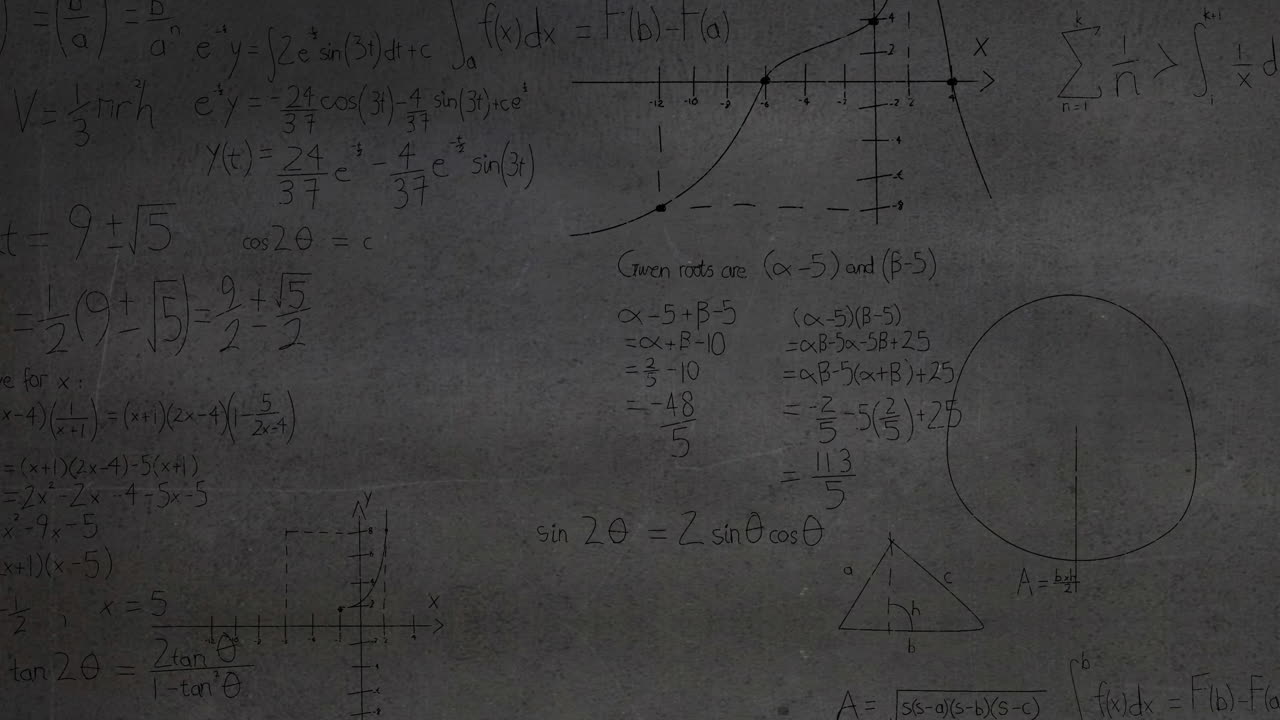 ) = (b/a) = b/aⁿ
e^-t y = ∫2e^t sin(3t)dt+c
∫ₐ f(x)dx = F(b)-F(a)
V = 1/3 πr²h
e^-t y = -24/37 cos(3t)-4/37 sin(3t)+ce^t
y(t) = 24/37 e - 4/37 e sin(3t)
t = 9 ± √5
cos2θ = c
= 1/2 (9 ± √5) = 9/2 ± √5/2
e for x :
x-4)(1/x+1) = (x+1)(2x-4)(1-5/2x-4)
=(x+1)(2x-4)-5(x+1)
=2x²-2x -4-5x-5
x²-9x-5
x+1)(x-5)
-1/2 , x = 5
tan2θ = 2tanθ/1-tan²θ
x
4
2
-12 -10 -8 -6 -4 -2 2 4
-2
-4
-6
-8
k
Σ 1/n > ∫ᵢᵏ⁺¹ 1/x d
n=1
Given roots are (α-5) and (β-5)
α-5+β-5
=α+β-10
=2/5-10
=-48/5
(α-5)(β-5)
=αβ-5α-5β+25
=αβ-5(α+β)+25
=-2/5-5(2/5)+25
=113/5
sin 2θ = 2 sinθ cosθ
y
8
6
4
2
x
a
c
h
b
A = bxh/2
A = √s(s-a)(s-b)(s-c)
∫ᵇ f(x)dx = F(b)-F(a